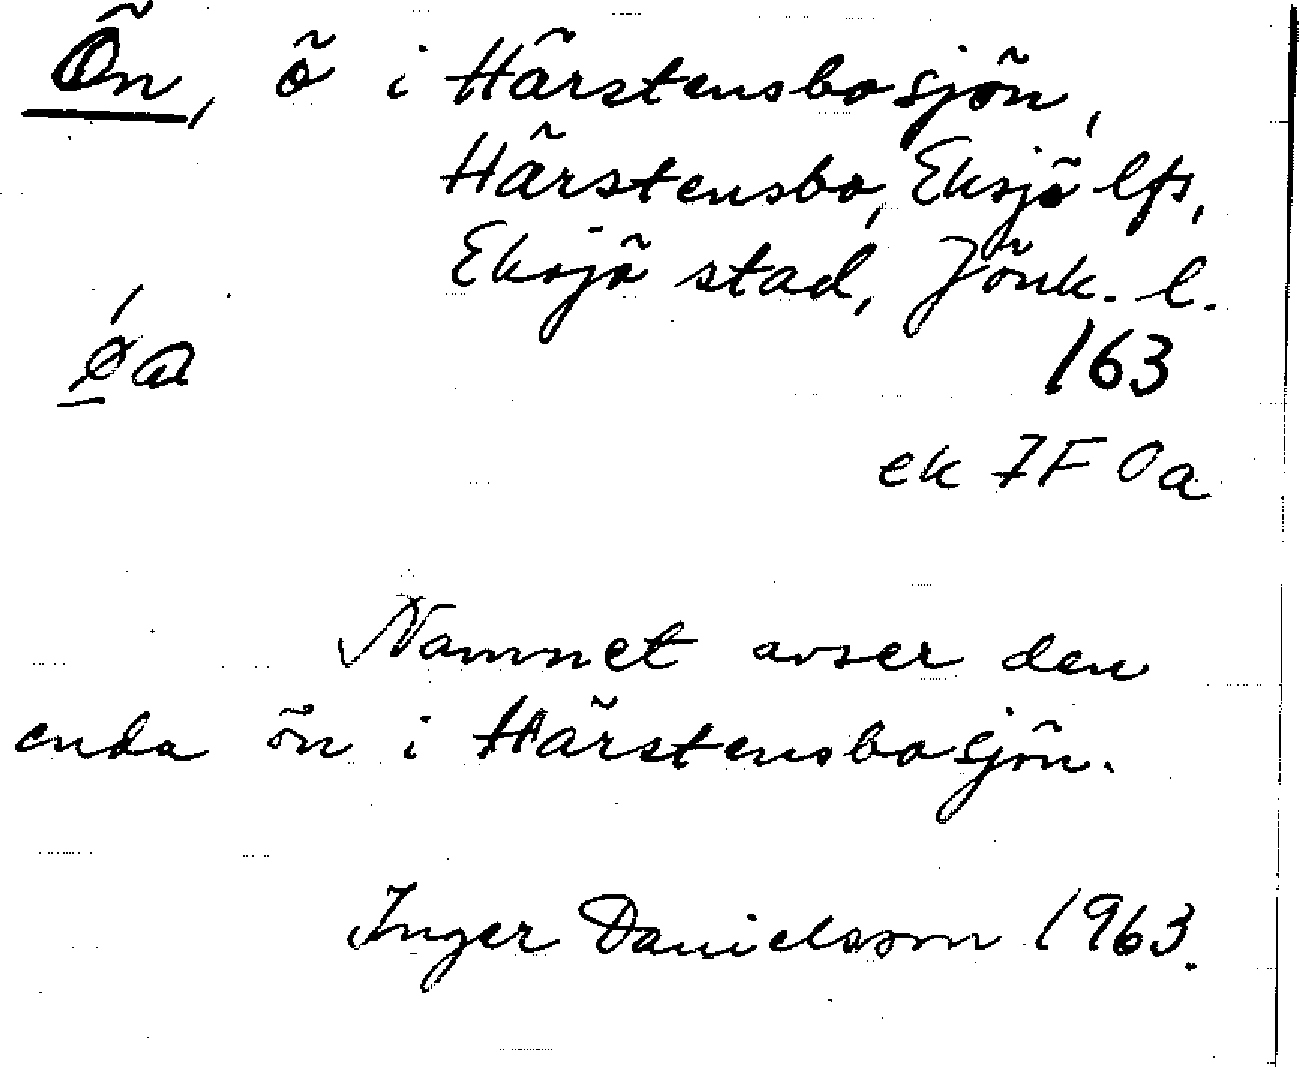 Ön, ö i Härstensbosjön,
Härstensbo, Eksjö lfs,
Eksjö stad, Jönk. l.
163
ek 7F 0a
Namnet avser den
enda ön i Härstensbosjön.
Inger Danielsson 1963.